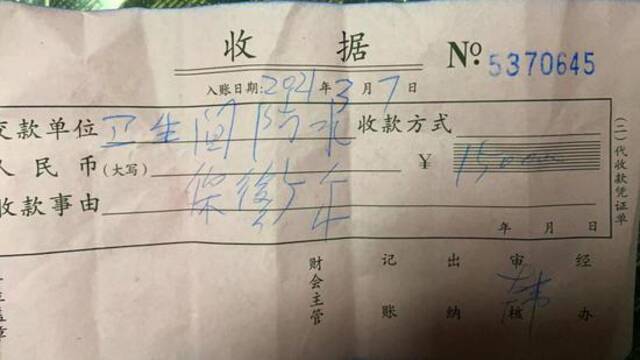 收 据 Nº 5370645
入账日期:2021年3月7日
交款单位 卫生间防水 收款方式
人民币(大写) ¥ 1500
收款事由 保修5年
年 月 日
财会主管 记账 出纳 审核 经办
韩
(二)代收款凭证单